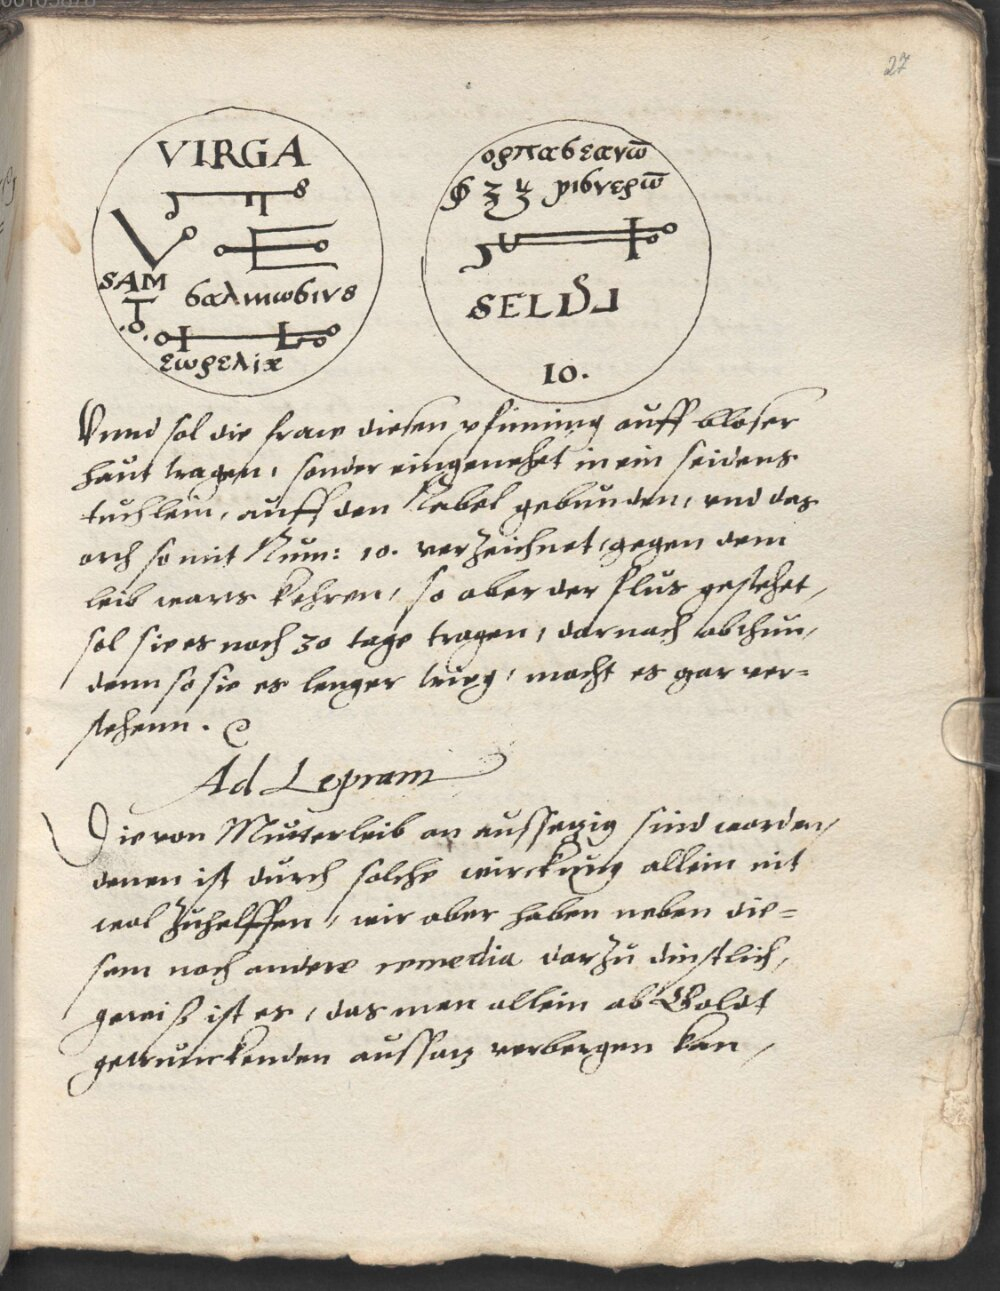 27
VIRGA
SAM
ϭαλιπωϭινϑ
εωρελιχ
ορπαϭεανω̅
ριϭνερω̅
SELD
10.
Vnnd sol die fraw diesen pfinning auff blloser
haut tragen, sonder eingenehet in ein seidens
tuchlein, auff den Nabel gebunden, vnd das
orth so mit Num: 10. verzeichnet, gegen dem
leib warts kehren, so aber der flus gestehet,
sol sie es noch 30 tage tragen, darnach abthun,
denn so sie es lenger trieg, macht es gar ver=
stehenn.
Ad Lepram
Die von Mutterleib an aussetzig sind worden,
denen ist durch solche wirckung allein nit
wol zuhelffen, wir aber haben neben die=
sem noch andere remedia darzu dinstlich,
gewiß ist es, das man allein ab Goldt
getrunckenden aussatz verbergen kan,